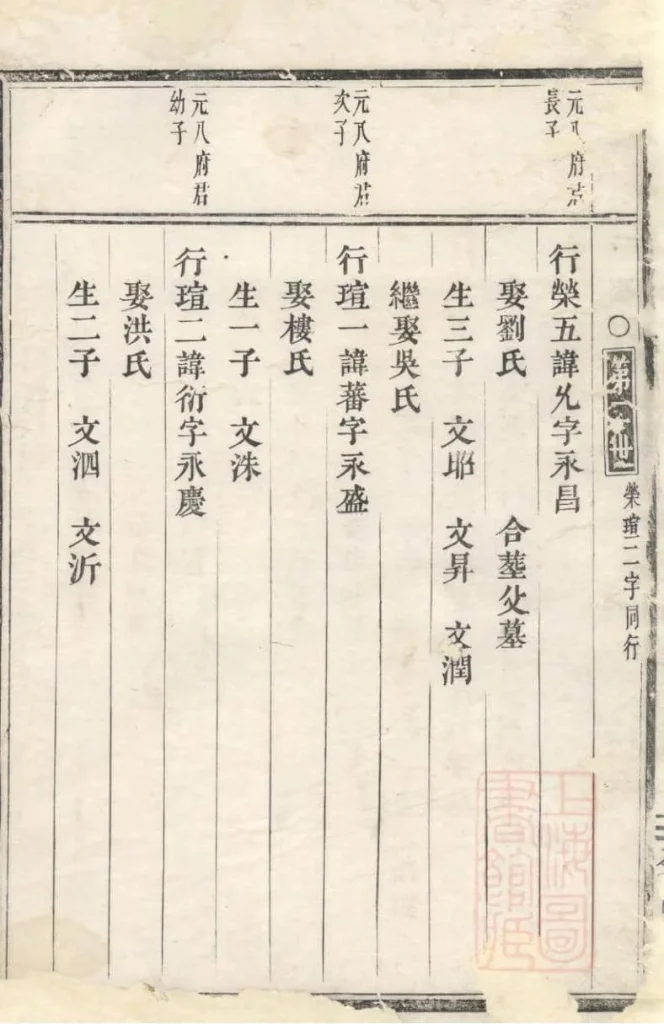 榮瑄二字同行
元八府君
長子
行榮五諱允字永昌
娶劉氏 合塟父墓
生三子 文耶 文昇 文潤
繼娶吳氏
元八府君
次子
行瑄一諱蕃字永盛
娶樓氏
生一子 文洙
元八府君
幼子
行瑄二諱衍字永慶
娶洪氏
生二子 文泗 文沂
上海圖
書館藏